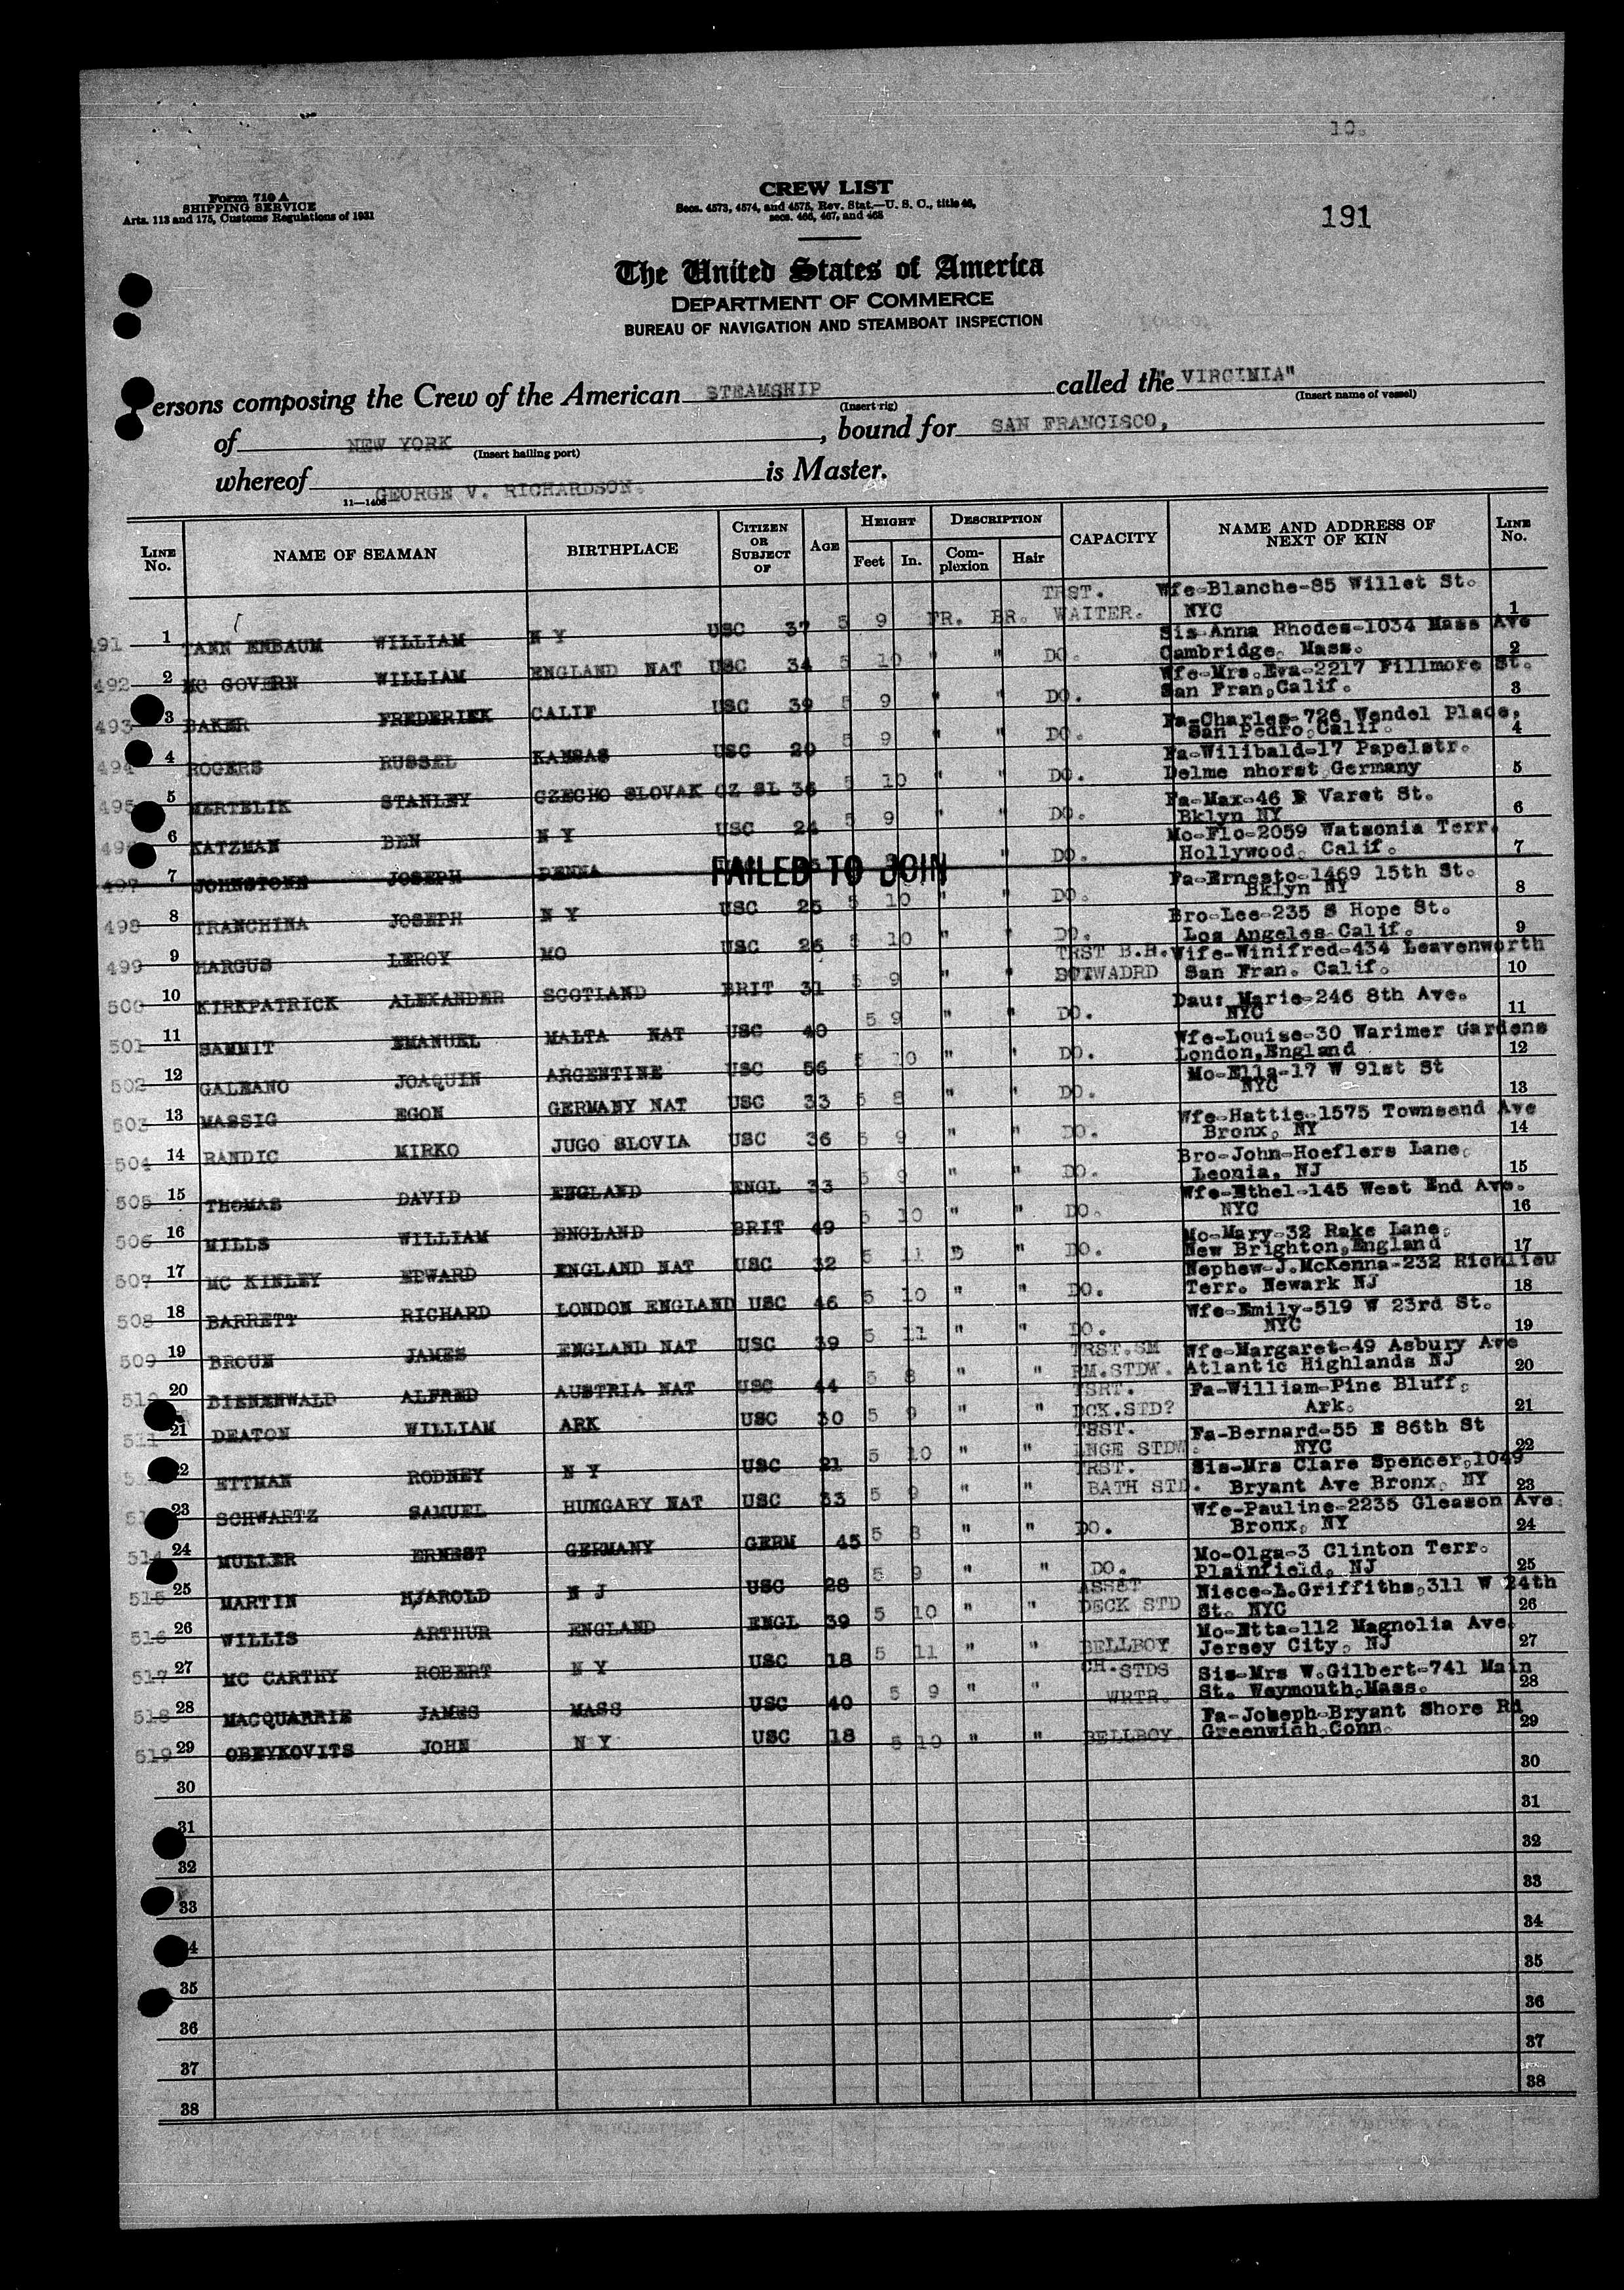 10.
Form 710 A
SHIPPING SERVICE
Arts. 113 and 175, Customs Regulations of 1931
CREW LIST
Secs. 4573, 4574, and 4575, Rev. Stat.—U. S. C., title 46,
secs. 466, 467, and 468
191
The United States of America
DEPARTMENT OF COMMERCE
BUREAU OF NAVIGATION AND STEAMBOAT INSPECTION
ersons composing the Crew of the American STEAMSHIP called the "VIRGINIA"
(Insert rig) (Insert name of vessel)
of NEW YORK, bound for SAN FRANCISCO,
(Insert hailing port)
whereof GEORGE V. RICHARDSON. is Master.
11—1406
LINE No. NAME OF SEAMAN BIRTHPLACE CITIZEN OR SUBJECT OF AGE HEIGHT Feet In. DESCRIPTION Complexion Hair CAPACITY NAME AND ADDRESS OF NEXT OF KIN LINE No.
491 1 TANN ENBAUM WILLIAM N Y USC 37 5 9 FR. BR. TRST. WAITER. Wfe-Blanche-85 Willet St. NYC 1
492 2 MC GOVERN WILLIAM ENGLAND NAT USC 34 5 10 " " DO. Sis Anna Rhodes-1034 Mass Ave Cambridge, Mass. 2
493 3 BAKER FREDERIEK CALIF USC 39 5 9 " " DO. Wfe-Mrs.Eva-2217 Fillmore St. San Fran,Calif. 3
494 4 ROGERS RUSSEL KANSAS USC 20 5 9 " " DO. Fa-Charles-726 Wendel Place, San Pedro,Calif. 4
495 5 MERTELIK STANLEY CZECHO SLOVAK CZ SL 36 5 10 " " DO. Fa-Wilibald-17 Papelstr. Delme nhorst Germany 5
496 6 KATZMAN BEN N Y USC 24 5 9 " " DO. Fa-Max-46 E Varet St. Bklyn NY 6
497 7 JOHNSTONE JOSEPH PENNA FAILED TO JOIN " DO. Mo-Flo-2059 Watsonia Terr. Hollywood, Calif. 7
498 8 TRANCHINA JOSEPH N Y USC 25 5 10 " " DO. Fa-Ernesto-1469 15th St. Bklyn NY 8
499 9 HARGUS LEROY MO USC 26 5 10 " " DO. Bro-Lee-235 S Hope St. Los Angeles Calif. 9
500 10 KIRKPATRICK ALEXANDER SCOTLAND BRIT 31 5 9 " " TRST B.H. Wife-Winifred-434 Leavenworth San Fran. Calif. 10
501 11 SAMMIT EMANUEL MALTA NAT USC 40 5 9 " " DO. Dau: Marie-246 8th Ave. NYC 11
502 12 GALEANO JOAQUIN ARGENTINE USC 56 5 10 " " DO. Wfe-Louise-30 Warimer Gardens London,England 12
503 13 MASSIG EGON GERMANY NAT USC 33 5 8 " " DO. Mo-Ella-17 W 91st St NYC 13
504 14 RANDIC MIRKO JUGO SLOVIA USC 36 5 9 " " DO. Wfe-Hattie-1575 Townsend Ave Bronx, NY 14
505 15 THOMAS DAVID ENGLAND ENGL 33 5 9 " " DO. Bro-John-Hoeflers Lane, Leonia, NJ 15
506 16 MILLS WILLIAM ENGLAND BRIT 49 5 10 " " DO. Wfe-Ethel-145 West End Ave. NYC 16
507 17 MC KINLEY EDWARD ENGLAND NAT USC 32 5 11 D " DO. Mo-Mary-32 Rake Lane, New Brighton,England 17
508 18 BARRETT RICHARD LONDON ENGLAND USC 46 5 10 " " DO. Nephew-J.McKenna-232 Richlieu Terr. Newark NJ 18
509 19 BROUN JAMES ENGLAND NAT USC 39 5 11 " " DO. Wfe-Emily-519 W 23rd St. NYC 19
510 20 BIENENWALD ALFRED AUSTRIA NAT USC 44 5 8 " " TRST.SM RM.STDW. Wfe-Margaret-49 Asbury Ave Atlantic Highlands NJ 20
511 21 DEATON WILLIAM ARK USC 30 5 9 " " TSRT. DCK.STD? Fa-William-Pine Bluff, Ark. 21
22 ETTMAN RODNEY N Y USC 21 5 10 " " LNGE STDW. Fa-Bernard-55 E 86th St NYC 22
23 SCHWARTZ SAMUEL HUNGARY NAT USC 33 5 9 " " TRST. BATH STD. Sis-Mrs Clare Spencer,1049 Bryant Ave Bronx, NY 23
514 24 MULLER ERNEST GERMANY GERM 45 5 8 " " DO. Wfe-Pauline-2235 Gleason Ave. Bronx, NY 24
515 25 MARTIN HJAROLD N J USC 28 5 9 " " DO. Mo-Olga-3 Clinton Terr. Plainfield, NJ 25
516 26 WILLIS ARTHUR ENGLAND ENGL 39 5 10 " " ASSET DECK STD Niece-L.Griffiths,311 W 24th St. NYC 26
517 27 MC CARTHY ROBERT N Y USC 18 5 11 " " BELLBOY Mo-Etta-112 Magnolia Ave. Jersey City, NJ 27
518 28 MACQUARRIE JAMES MASS USC 40 5 9 " " CH.STDS WRTR. Sis-Mrs W.Gilbert-741 Main St. Weymouth,Mass. 28
519 29 OBEYKOVITS JOHN N Y USC 18 5 10 " " BELLBOY. Fa-Joheph-Bryant Shore Rd Greenwich,Conn. 29
30 30
31 31
32 32
33 33
4 34
35 35
36 36
37 37
38 38